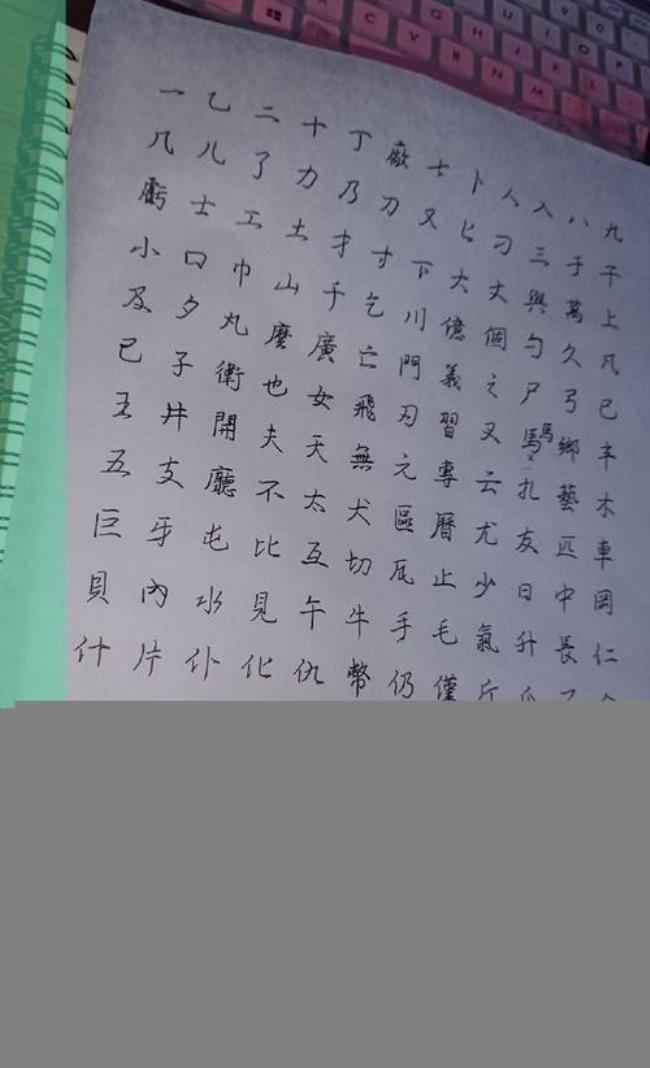 一 乙 二 十 丁 廠 七 卜 人 入 八 九
几 儿 了 力 乃 刀 又 匕 刁 三 于 干
虧 士 工 土 才 寸 下 大 丈 與 萬 上
小 口 巾 山 千 乞 川 億 個 勺 久 凡
及 夕 丸 麼 廣 亡 門 義 之 尸 弓 己
已 子 衛 也 女 飛 刃 習 叉 馬 馬 鄉 丰
王 井 開 夫 天 無 元 專 云 扎 藝 木
五 支 廳 不 太 犬 區 曆 尤 友 匹 車
巨 牙 屯 比 互 切 瓦 止 少 日 中 岡
貝 內 水 見 午 牛 手 毛 氣 升 長 仁
什 片 仆 化 仇 幣 仍 僅 斤